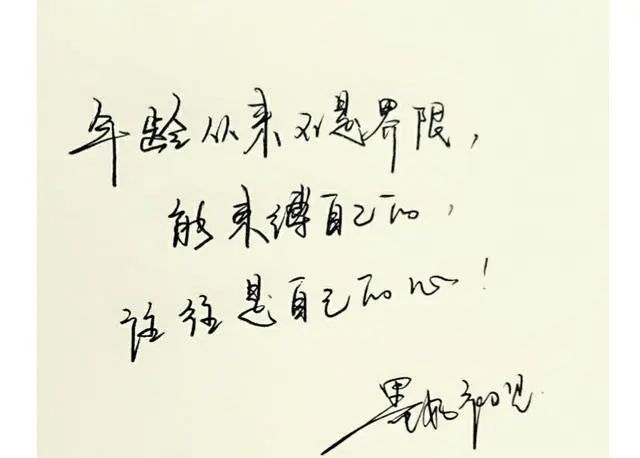 年龄从来不是界限，
能束缚自己的，
往往是自己的心！